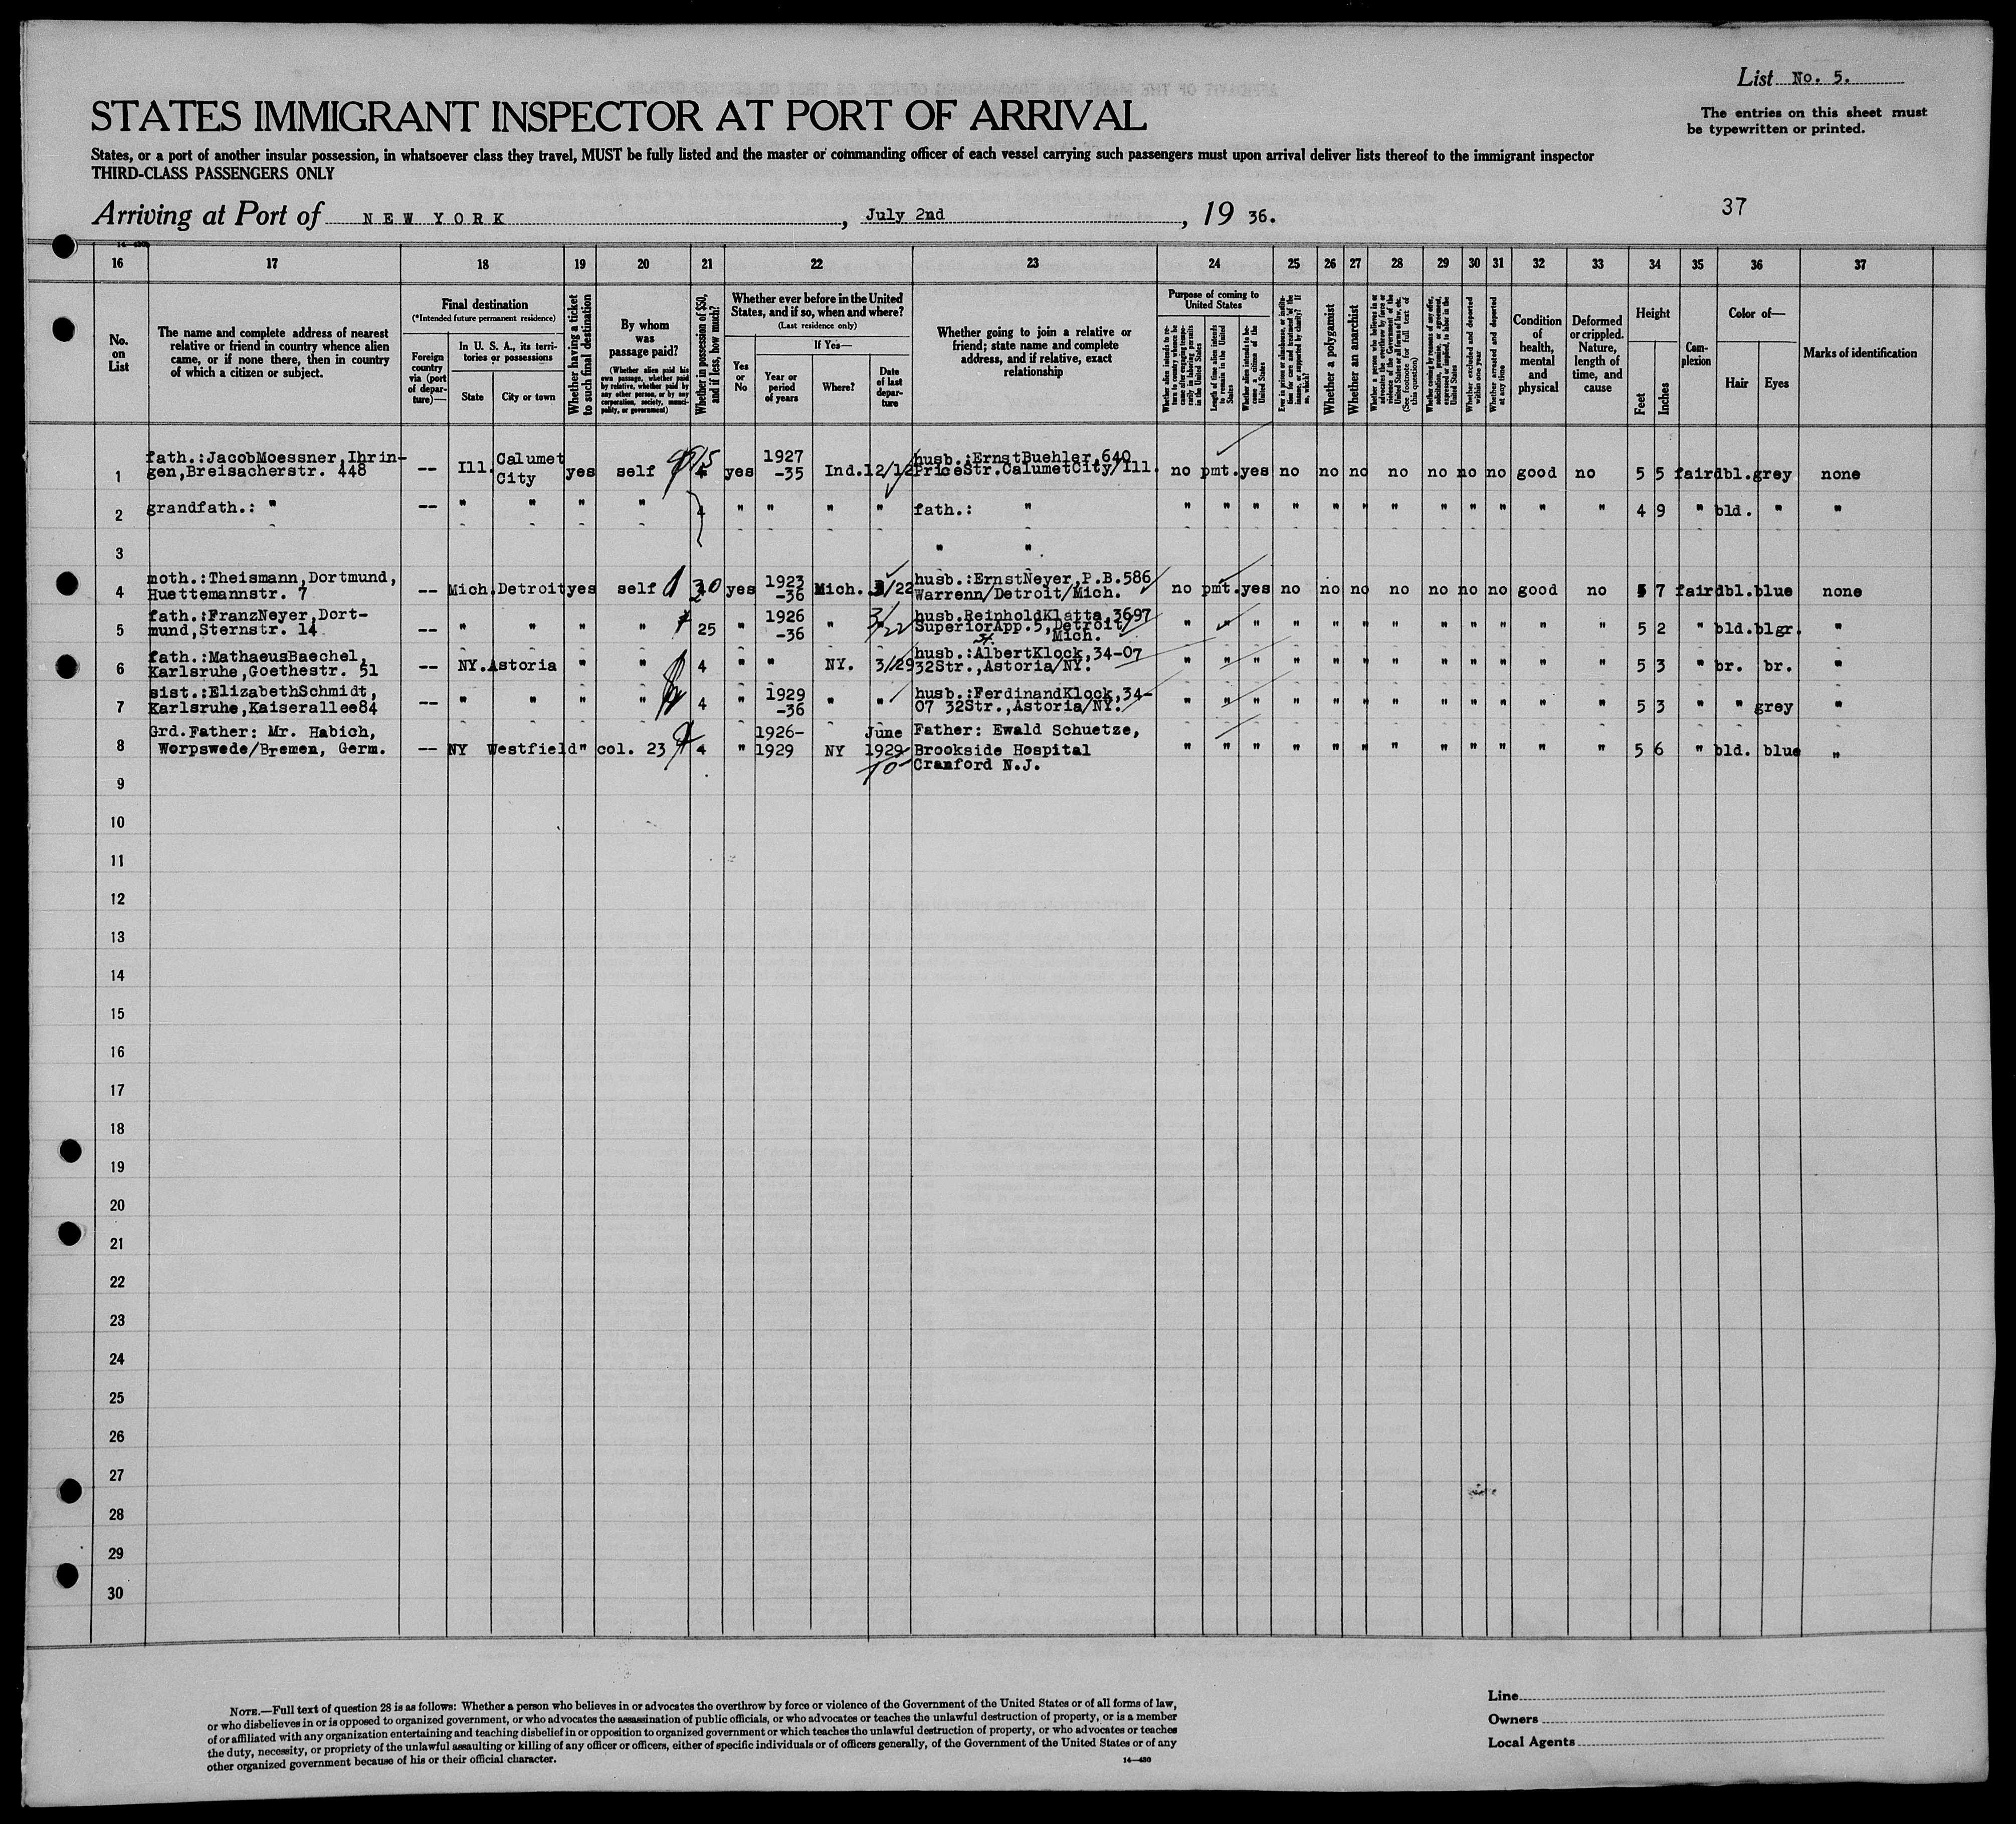 List No. 5.
STATES IMMIGRANT INSPECTOR AT PORT OF ARRIVAL
The entries on this sheet must
be typewritten or printed.
States, or a port of another insular possession, in whatsoever class they travel, MUST be fully listed and the master or commanding officer of each vessel carrying such passengers must upon arrival deliver lists thereof to the immigrant inspector
THIRD-CLASS PASSENGERS ONLY
Arriving at Port of NEW YORK, July 2nd, 19 36.
37
16 17 18 19 20 21 22 23 24 25 26 27 28 29 30 31 32 33 34 35 36 37
No. on List
The name and complete address of nearest relative or friend in country whence alien came, or if none there, then in country of which a citizen or subject.
Final destination
(*Intended future permanent residence)
Foreign country via (port of departure)—
In U. S. A., its territories or possessions
State
City or town
Whether having a ticket to such final destination
By whom was passage paid?
(Whether alien paid his own passage, whether paid by relative, whether paid by any other person, or by any corporation, society, municipality, or government)
Whether in possession of $50, and if less, how much?
Whether ever before in the United States, and if so, when and where?
(Last residence only)
Yes or No
If Yes—
Year or period of years
Where?
Date of last departure
Whether going to join a relative or friend; state name and complete address, and if relative, exact relationship
Purpose of coming to United States
Whether alien intends to return to country whence he came after engaging temporarily in laboring pursuits in the United States
Length of time alien intends to remain in the United States
Whether alien intends to become a citizen of the United States
Ever in prison or almshouse, or institution for care and treatment of the insane, or supported by charity? If so, which?
Whether a polygamist
Whether an anarchist
Whether a person who believes in or advocates the overthrow by force or violence of the Government of the United States or all forms of law, etc. (See footnote for full text of this question)
Whether coming by reason of any offer, solicitation, promise, or agreement, expressed or implied, to labor in the United States
Whether excluded and deported within one year
Whether arrested and deported at any time
Condition of health, mental and physical
Deformed or crippled. Nature, length of time, and cause
Height
Feet
Inches
Complexion
Color of—
Hair
Eyes
Marks of identification
1 fath.:JacobMoessner,Ihrin-
gen,Breisacherstr. 448 -- Ill. Calumet City yes self 15 yes 1927 -35 Ind. 12/12 husb.:ErnstBuehler,640
PriceStr.CalumetCity/Ill. no pmt. yes no no no no no no no good no 5 5 fair dbl. grey none
2 grandfath.: " -- " " " " 4 " " " " fath.: " " " " " " " " " " " " " 4 9 " bld. " "
3 " "
4 moth.:Theismann,Dortmund,
Huettemannstr. 7 -- Mich. Detroit yes self 30 yes 1923 -36 Mich. /22 husb.:ErnstNeyer,P.B.586
Warrenn/Detroit/Mich. no pmt. yes no no no no no no no good no 5 7 fair dbl. blue none
5 father:FranzNeyer,Dort-
mund,Sternstr. 14 -- " " " " 25 " 1926 -36 " 3/22 husb.ReinholdKlatta,3697
SuperiorApp.5,Detroit/
St. Mich. " " " " " " " " " " " " 5 2 " bld. blgr. "
6 fath.:MathaeusBaechel,
Karlsruhe,Goethestr. 51 -- NY. Astoria " " 4 " " NY. 3/29 husb.:AlbertKlock,34-07
32Str.,Astoria/NY. " " " " " " " " " " " " 5 3 " br. br. "
7 sist.:ElizabethSchmidt,
Karlsruhe,Kaiserallee84 -- " " " " 4 " 1929 -36 " " husb.:FerdinandKlock,34-
07 32Str.,Astoria/NY. " " " " " " " " " " " " 5 3 " " grey "
8 Grd.Father: Mr. Habich,
Worpswede/Bremen, Germ. -- NY Westfield " col. 23 4 " 1926- 1929 NY June 1929 Father: Ewald Schuetze,
Brookside Hospital
Cranford N.J. " " " " " " " " " " " " 5 6 " bld. blue "
9
10
11
12
13
14
15
16
17
18
19
20
21
22
23
24
25
26
27
28
29
30
NOTE.—Full text of question 28 is as follows: Whether a person who believes in or advocates the overthrow by force or violence of the Government of the United States or of all forms of law,
or who disbelieves in or is opposed to organized government, or who advocates the assassination of public officials, or who advocates or teaches the unlawful destruction of property, or is a member
of or affiliated with any organization entertaining and teaching disbelief in or opposition to organized government or which teaches the unlawful destruction of property, or who advocates or teaches
the duty, necessity, or propriety of the unlawful assaulting or killing of any officer or officers, either of specific individuals or of officers generally, of the Government of the United States or of any
other organized government because of his or their official character.
14—430
Line
Owners
Local Agents